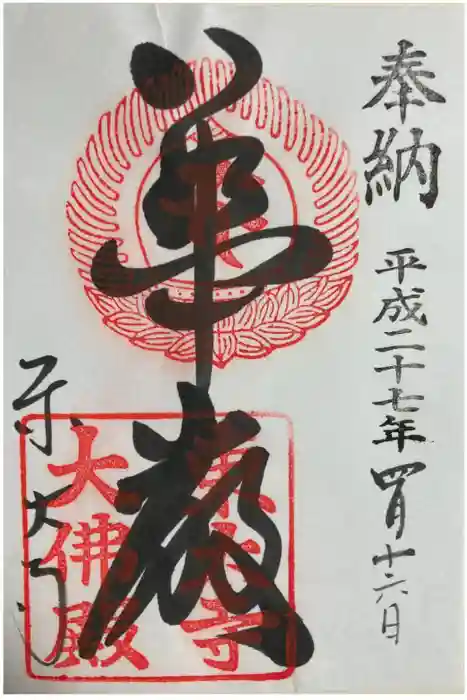 奉納
平成二十七年四月十六日
華厳
東大寺
東大寺
大佛殿